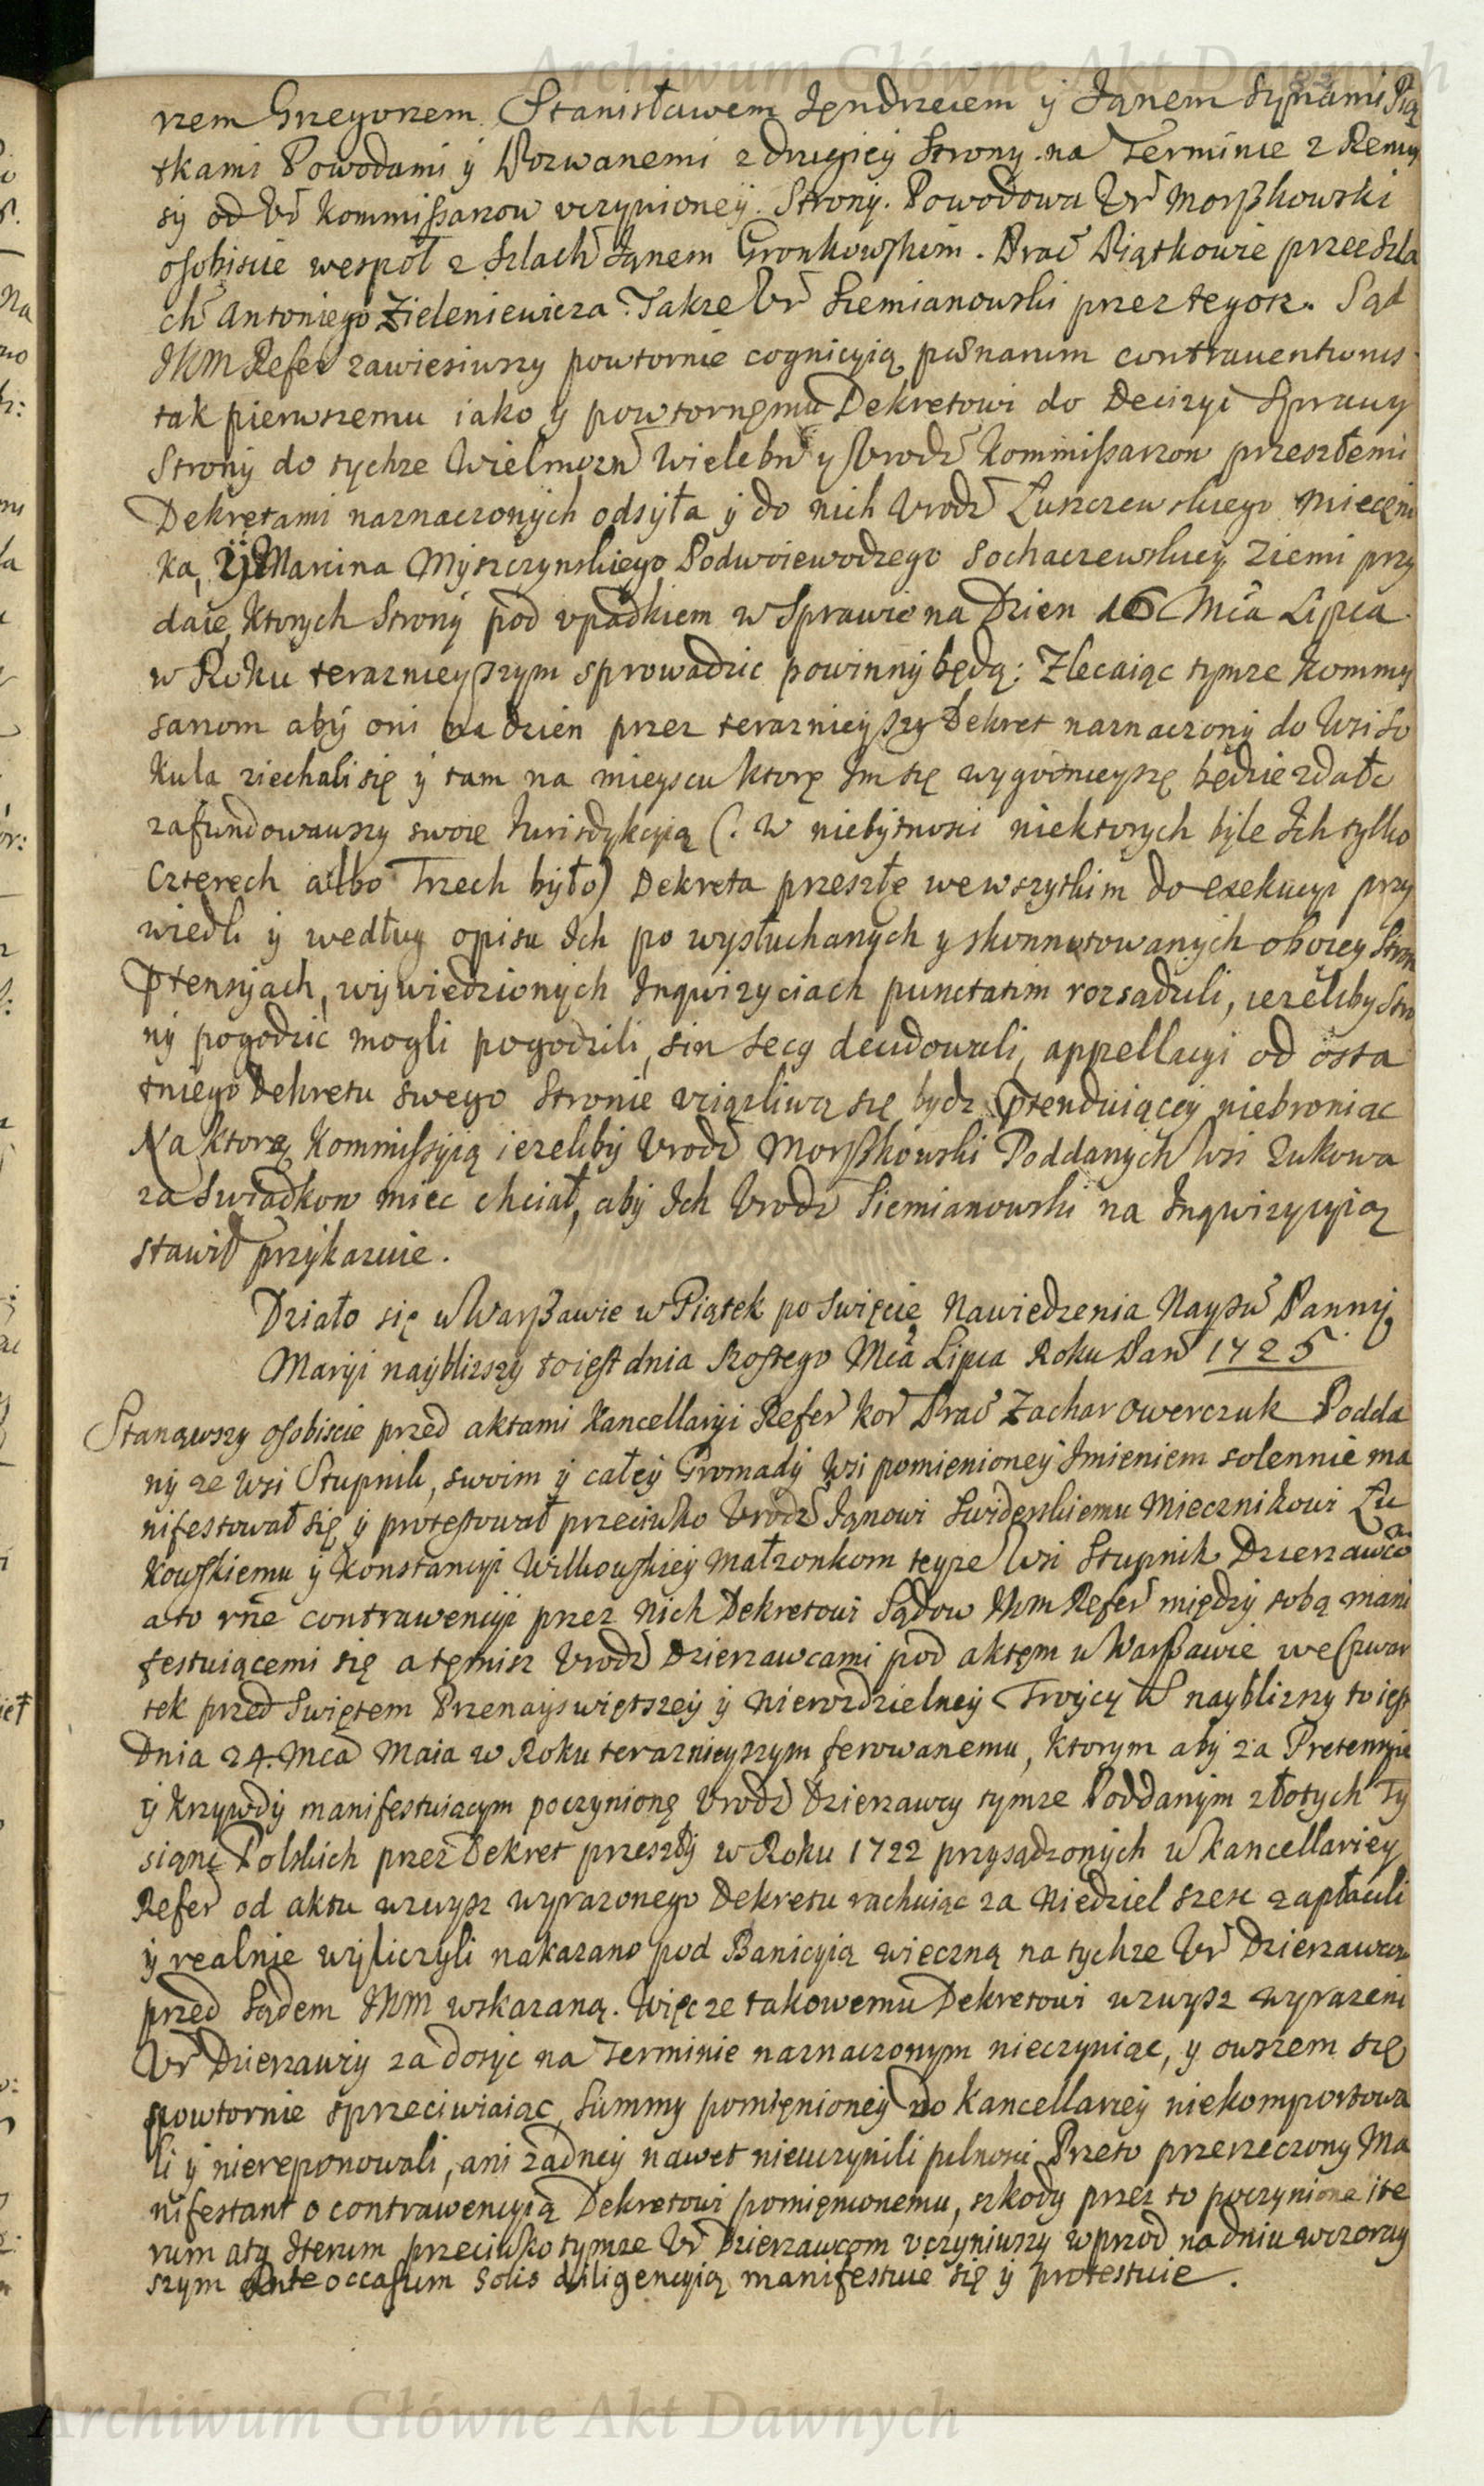 Archiwum Główne Akt Dawnych
83
rzem Grzegorzem Stanisławem Jędrzeiem y Janem Synami Pią
tkami Powodami y Pozwanemi z drugiey Strony na Terminie z Remis
sy od Ur Kommissarzow uczynioney. Strony. Powodowa Ur Morszkowski
osobiscie wespoł z Szlach Janem Gronkowskim. Prac Piątkowie przez Szla
ch Antoniego Zieleniewicza. Takze Ur Siemianowski przez tegosz. Sąd
JKM Refer zawiesiwszy powtornie cognicyią pænarum contraventionis
tak pierwszemu iako y powtornemu Dekretowi do Decizyi Sprawy
Strony do tychze Wielmozn Wielebn y Urodz Kommissarzow przeszłemi
Dekretami naznaczonych odsyła y do nich Urodz Łuszczewskiego Mieczni
ka, y Marcina Myszczynskiego Podwoiewodzego Sochaczewskiey Ziemi przy
daie, Ktorych Strony pod upadkiem w Sprawie na Dzien 16 Mca Lipca
w Roku teraznieyszym sprowadzic powinny będą: Zlecaiąc tymze Kommis
sarzom aby oni na dzien przez teraznieyszy Dekret naznaczony do Wsi So
kula ziechali się y tam na mieyscu ktorę Jm się wygodnieyszę będzie zdało
zafundowawszy swoię Jurisdykcyią (: w niebytnosci niektorych byle Jch tylko
Czterech albo Trzech było) Dekreta przeszłę we wszytkim do exekucyi przy
wiedli y według opisu Jch po wysłuchanych y skonnotowanych obozey Stron
ptensyiach, wywiedzionych Jnqwizyciach punctatim rozsądzili, iezeliby Stro
ny pogodzic mogli pogodzili, sin secg decidowali, appellacyi od osta
tniego Dekretu swego Stronie uciązliwą się bydz ptenduiącey niebroniac
Na ktorą Kommissyią iezeliby Urodz Morszkowski Poddanych Wsi Zukowa
za Swiadkow miec chciał, aby Jch Urodz Siemianowski na Jnqwizycyią
stawił przykazuie.
Działo się w Warszawie w Piątek po Swięcie Nawiedzenia Nayśw Panny
Maryi nayblizszy to iest dnia Szostego Mca Lipca Roku Pan 1725
Stanąwszy osobiscie przed aktami Kancellaryi Refer Kor Prac Zachar Owerczuk Podda
ny ze Wsi Stupnik, swoim y całey Gromady Wsi pomienioney Jmieniem solennie ma
nifestował się y protestował przeciwko Urodz Janowi Swiderskiemu Miecznikowi Łu
kowskiemu y Konstancyi Wilkowskiey Małzonkom teyze Wsi Stupnik Dzierzawco
a to rne contrawencyi przez Nich Dekretowi Sądow JKM Refer między sobą mani
festuiącemi się a temisz Urodz Dzierzawcami pod aktem w Warszawie we Czwar
tek przed Swiętem Przenayswiętszey y Nierozdzielney Troycy S nayblizszy to iest
Dnia 24. Mca Maia w Roku teraznieyszym ferowanemu, Ktorym aby za Pretensyie
y Krzywdy manifestuiącym poczynionę Urodz Dzierzawcy tymze Poddanym złotych Ty
siąnc Polskich przez Dekret przeszły w Roku 1722 przysądzonych w Kancellariey
Refer od aktu wzwysz wyrazonego Dekretu rachuiąc za Niedziel szesc zapłacili
y realnie wyliczyli nakazano pod Banicyią wieczną na tychze Ur Dzierzawcow
przed Sądem JKM wskazaną. Więc ze takowemu Dekretowi wzwysz wyrazeni
Ur Dzierzawcy za dosyc na Terminie naznaczonym nieczyniąc, y owszem się
powtornie sprzeciwiaiąc, Summy pomienioney do Kancellariey niekomportowa
li y niereponowali, ani zadney nawet nieuczynili pilnosci Przeto przerzeczony Ma
nifestant o contrawencyią Dekretowi pomienionemu, szkody przez to poczynione ite
rum atq Iterum przeciwko tymze Ur Dzierzawcom uczyniwszy wprzod na dniu wczoray
szym ante occasum Solis diligencyią manifestuie się y protestuie.
Archiwum Główne Akt Dawnych